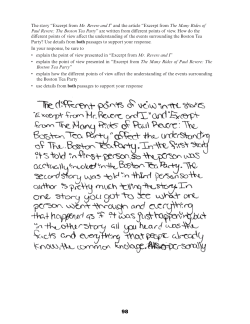 The story "Excerpt from Mr. Revere and I" and the article "Excerpt from The Many Rides of
Paul Revere: The Boston Tea Party" are written from different points of view. How do the
different points of view affect the understanding of the events surrounding the Boston Tea
Party? Use details from both passages to support your response.
In your response, be sure to
• explain the point of view presented in "Excerpt from Mr. Revere and I"
• explain the point of view presented in "Excerpt from The Many Rides of Paul Revere: The
Boston Tea Party"
• explain how the different points of view affect the understanding of the events surrounding
the Boston Tea Party
• use details from both passages to support your response
The different points of view in the stories
"Excerpt from Mr. Revere and I" and "Excerpt
from The Many Rides of Paul Revere: The
Boston Tea Party" effect the understanding
of The Boston Tea Party. In the first story
it is told in first person so the person was
actually involved in the Boston Tea Party. The
second story was told in third person so the
author is pretty much telling the story. In
one story you got to see what one
person went through and everything
that happened as if it was just happening but
in the other story all you heard was the
facts and everything that people already
know, the common knowlage. personally
98